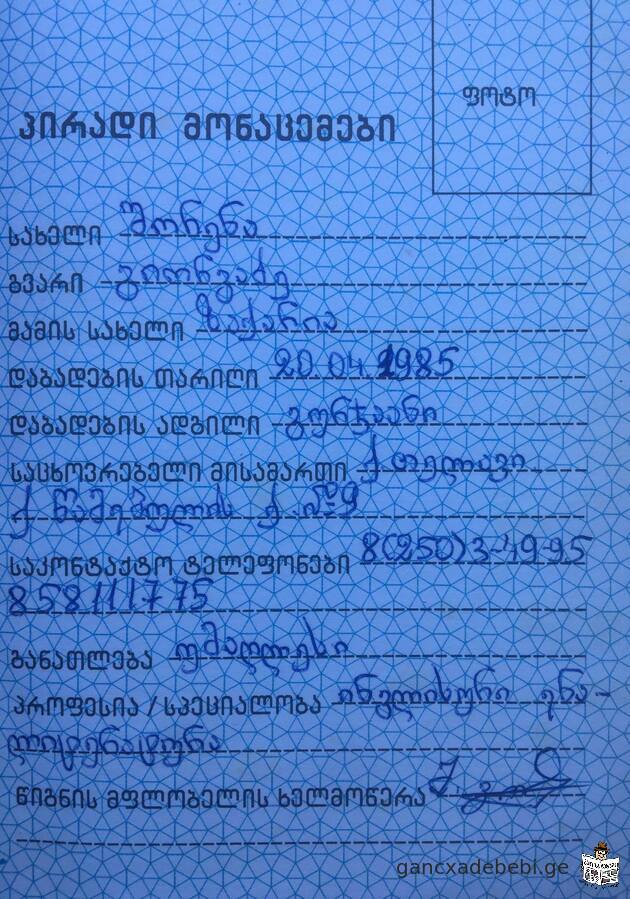 ფოტო
პირადი მონაცემები
სახელი შორენა
გვარი გიორგაძე
მამის სახელი ზაქარია
დაბადების თარიღი 20.04.1985
დაბადების ადგილი გურჯაანი
საცხოვრებელი მისამართი ქ. თელავი
ქ. წამებულის ქ. №9
საკონტაქტო ტელეფონები 8(250)3-49-95
858111775
განათლება უმაღლესი
პროფესია / სპეციალობა ინგლისური ენა-
ლიტერატურა
წიგნის მფლობელის ხელმოწერა
gancxadebebi.ge